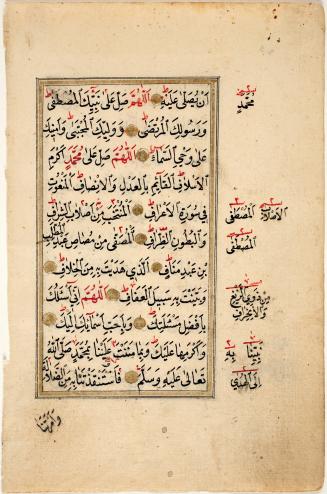 ان يصلى عليه اللهم صل على نبيك المصطفى
ورسولك المرتضى ووليك المجتبى وامينك
على وحي السماء اللهم صل على محمد اكرم
الاسلاف القايم بالعدل والانصاف المنعوت
في سورة الاعراف المنتخب من اصلاب الشراف
والبطون الظراف المصفى من مصاص عبد المطلب
بن عبد مناف الذي هديت به من الخلاف
وبينت به سبيل العفاف اللهم اني اسئلك
بافضل مسئلتك وباحب اسمائك اليك
واكرمها عليك وبما مننت علينا بمحمد صلى الله
تعالى عليه وسلم فاستنقذتنا به من الضلالة
وامرتنا
محمد
المصطفى
المصطفى
نبينا
به